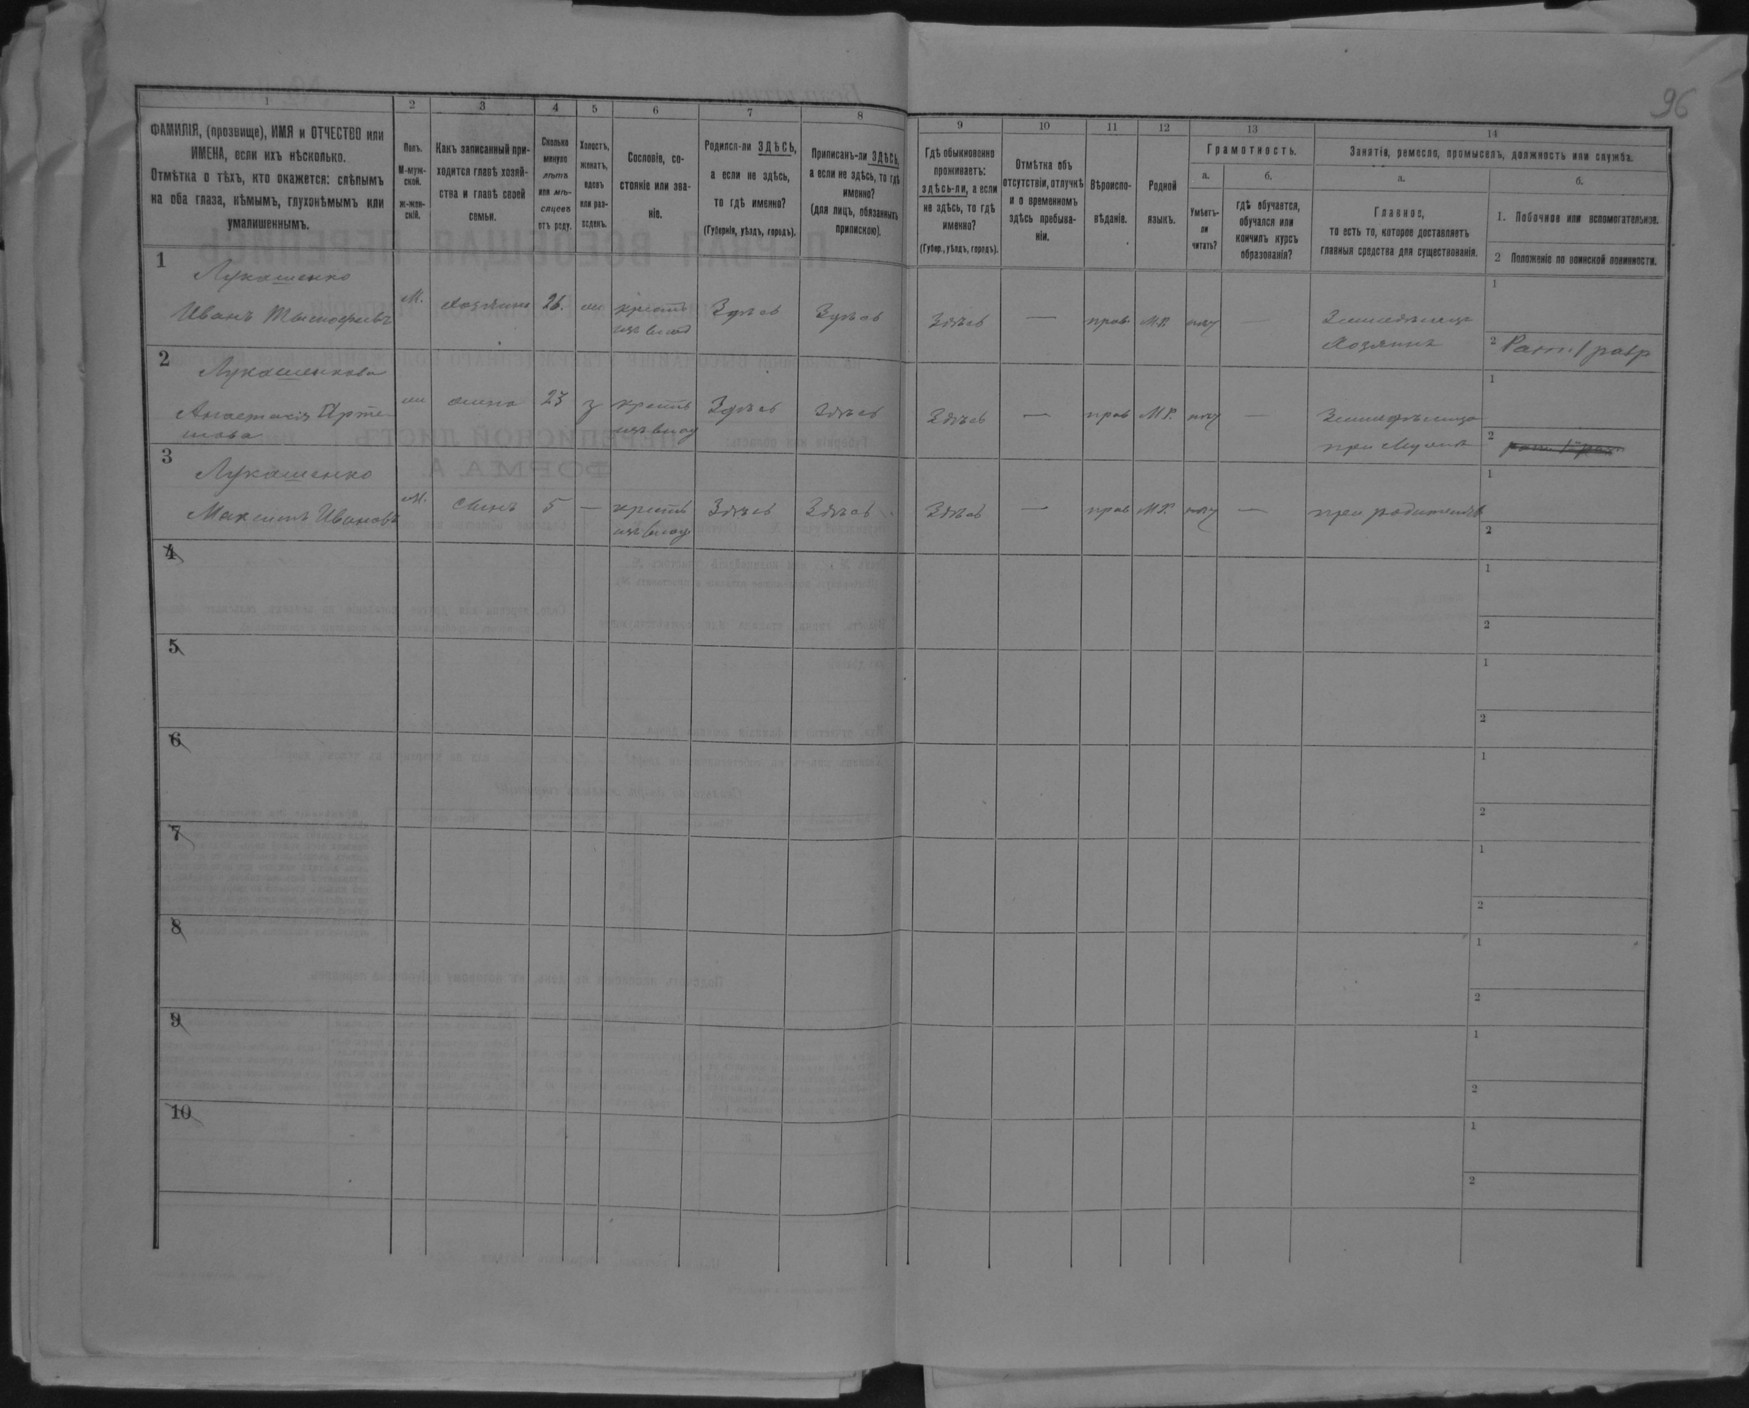 96
1
2
3
4
5
6
7
8
9
10
11
12
13
14
ФАМИЛІЯ, (прозвище), ИМЯ и ОТЧЕСТВО или
ИМЕНА, если ихъ нѣсколько.
Отмѣтка о тѣхъ, кто окажется: слѣпымъ
на оба глаза, нѣмымъ, глухонѣмымъ или
умалишеннымъ.
Полъ.
М-муж-
ской.
ж-жен-
скій.
Какъ записанный при-
ходится главѣ хозяй-
ства и главѣ своей
семьи.
Сколько
минуло
лѣтъ
или мѣ-
сяцевъ
отъ роду.
Холостъ,
женатъ,
вдовъ
или раз-
веденъ.
Сословіе, со-
стояніе или зва-
ніе.
Родился-ли ЗДѢСЬ,
а если не здѣсь,
то гдѣ именно?
(Губернія, уѣздъ, городъ).
Приписанъ-ли ЗДѢСЬ,
а если не здѣсь, то гдѣ
именно?
(для лицъ, обязанныхъ
припискою).
Гдѣ обыкновенно
проживаетъ:
здѣсь-ли, а если
не здѣсь, то гдѣ
именно?
(Губер., уѣздъ, городъ).
Отмѣтка объ
отсутствіи, отлучкѣ
и о временномъ
здѣсь пребыва-
ніи.
Вѣроиспо-
вѣданіе.
Родной
языкъ.
Грамотность.
а.
Умѣетъ-
ли
читать?
б.
гдѣ обучается,
обучался или
кончилъ курсъ
образованія?
Занятія, ремесло, промыселъ, должность или служба.
а.
Главное,
то есть то, которое доставляетъ
главныя средства для существованія.
б.
1. Побочное или вспомогательное.
2 Положеніе по воинской повинности.
1
Лукашенко
Иванъ Тымофѣевъ
М. Хозяинъ 26. крест. Здѣсь Здѣсь Здѣсь — прав. М.Р. —
Хозяинъ
1
2 Рат. 1 разр
2
Лукашенкова
Анастасія Арте-
мова
жена 23 з крест. Здѣсь Здѣсь Здѣсь — прав М.Р. —
1
2
3
Лукашенко
Максимъ Ивановъ
М. Сынъ 5 — крест. Здѣсь Здѣсь Здѣсь — прав М.Р. — при родителяхъ
1
2
4
1
2
5
1
2
6
1
2
7
1
2
8
1
2
9
1
2
10
1
2